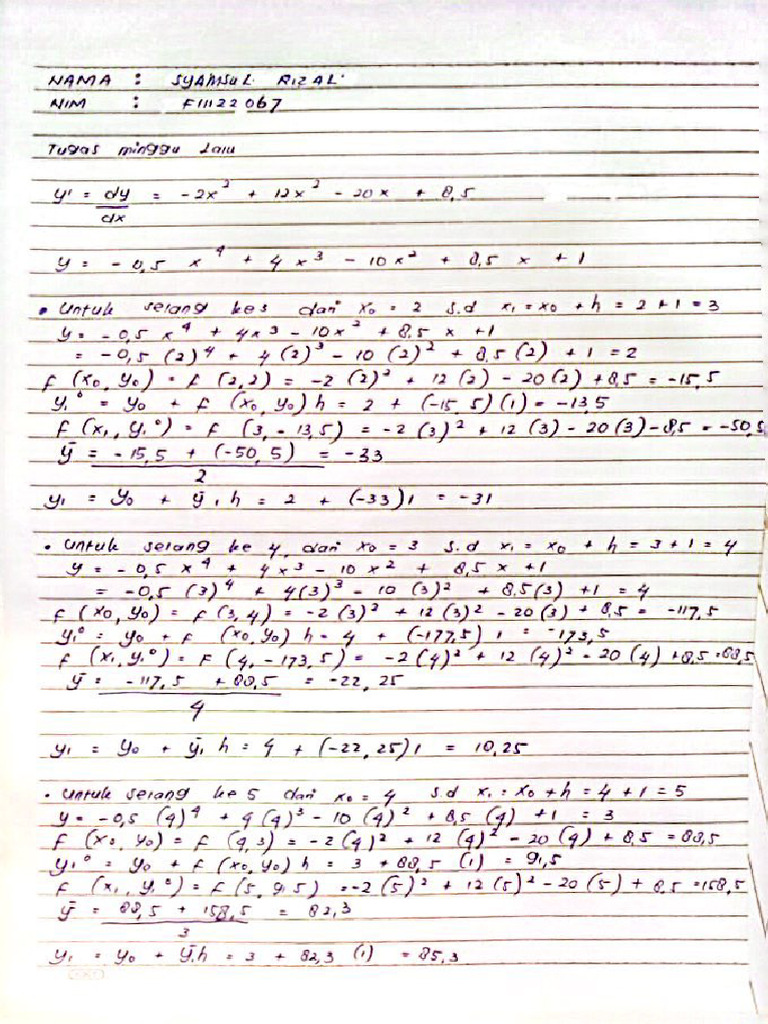 NAMA : SYAMSUL RIZAL
NIM : F11122067
Tugas minggu Lalu
y' = dy/dx = -2x³ + 12x² - 20x + 8,5
y = -0,5 x⁴ + 4x³ - 10x² + 8,5 x + 1
• Untuk selang ke 3 dari x₀ = 2 s.d x₁ = x₀ + h = 2 + 1 = 3
y = -0,5 x⁴ + 4x³ - 10x² + 8,5 x + 1
= -0,5 (2)⁴ + 4(2)³ - 10 (2)² + 8,5 (2) + 1 = 2
f (x₀, y₀) = f (2,2) = -2 (2)² + 12 (2) - 20(2) + 8,5 = -15,5
y₁° = y₀ + f (x₀, y₀) h = 2 + (-15,5)(1) = -13,5
f (x₁, y₁°) = f (3, -13,5) = -2 (3)² + 12 (3) - 20(3) - 8,5 = -50,5
ȳ = -15,5 + (-50,5) = -33
2
y₁ = y₀ + ȳ₁ h = 2 + (-33)1 = -31
• Untuk selang ke 4, dari x₀ = 3 s.d x₁ = x₀ + h = 3 + 1 = 4
y = -0,5 x⁴ + 4x³ - 10 x² + 8,5 x + 1
= -0,5 (3)⁴ + 4(3)³ - 10 (3)² + 8,5(3) + 1 = 4
f (x₀, y₀) = f (3,4) = -2 (3)² + 12 (3)² - 20(3) + 8,5 = -117,5
y₁° = y₀ + f (x₀, y₀) h = 4 + (-177,5) 1 = -173,5
f (x₁, y₁°) = f (4, -173,5) = -2 (4)² + 12 (4)² - 20 (4) + 8,5 = 88,5
ȳ = -117,5 + 88,5 = -22,25
4
y₁ = y₀ + ȳ₁ h = 4 + (-22,25)1 = 10,25
• Untuk selang ke 5 dari x₀ = 4 s.d x₁ = x₀ + h = 4 + 1 = 5
y = -0,5 (4)⁴ + 4 (4)³ - 10 (4)² + 8,5 (4) + 1 = 3
f (x₀, y₀) = f (4,3) = -2 (4)² + 12 (4)² - 20 (4) + 8,5 = 88,5
y₁° = y₀ + f (x₀, y₀) h = 3 + 88,5 (1) = 91,5
f (x₁, y₁°) = f (5, 9,5) = -2 (5)² + 12 (5)² - 20 (5) + 8,5 = 158,5
ȳ = 88,5 + 158,5 = 82,3
3
y₁ = y₀ + ȳ₁h = 3 + 82,3 (1) = 85,3